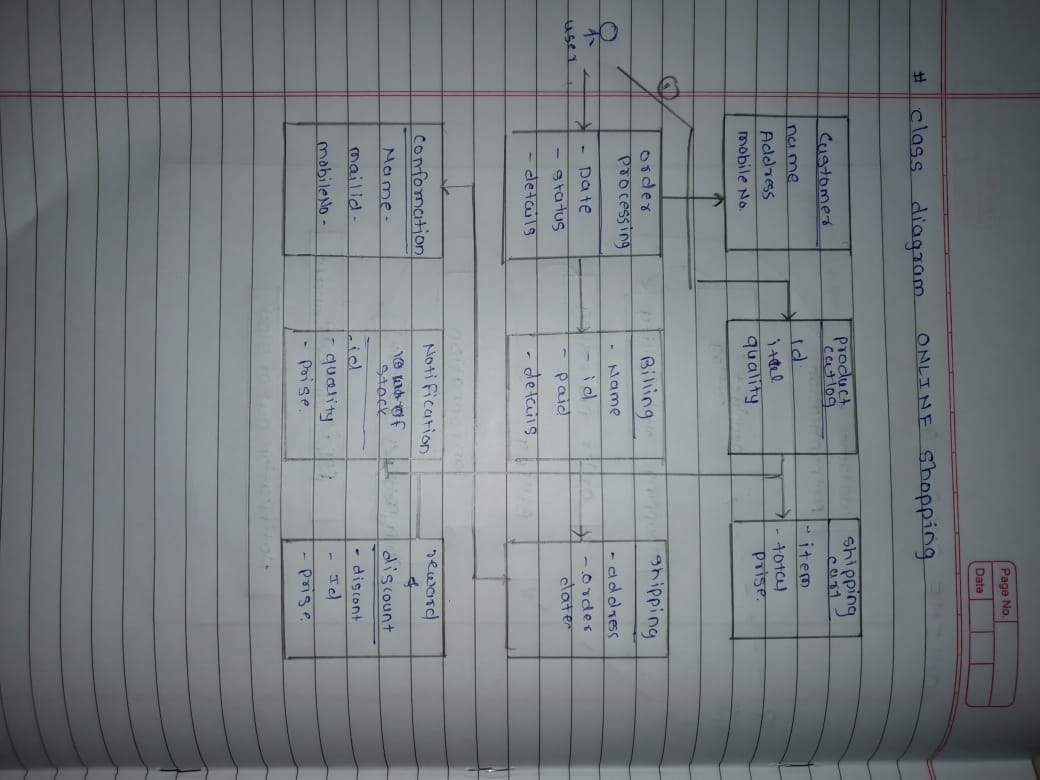 Page No.
Date
# class diagram ONLINE Shopping
user
Customer
name
Address
mobile No.
product
catlog
id.
quality
shipping
cart
- item
- total
prise.
order
processing
- Date
- status
- details
Billing
- Name
- id
- paid
- details
shipping
- address
- order
date
conformation
Name -
mailid -
mobileNo -
Notification
stock
- id
- quality
- prise.
reward
&
discount
- discont
- Id
- prise.